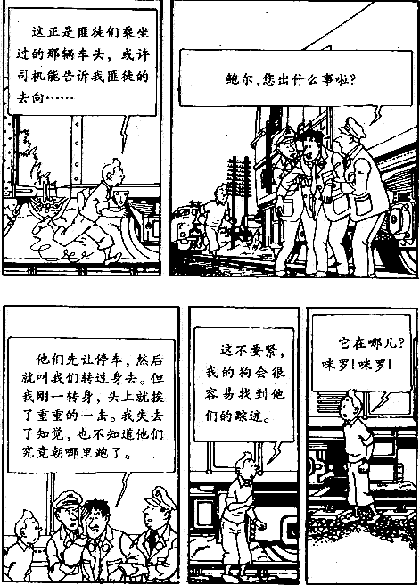 这正是匪徒们乘坐
过的那辆车头，或许
司机能告诉我匪徒的
去向……
鲍尔，您出什么事啦？
他们先让停车，然后
就叫我们转过身去。但
我刚一转身，头上就挨
了重重的一击。我失去
了知觉，也不知道他们
究竟朝哪里跑了。
这不要紧，
我的狗会很
容易找到他
们的踪迹。
它在哪儿？
咪罗！咪罗！